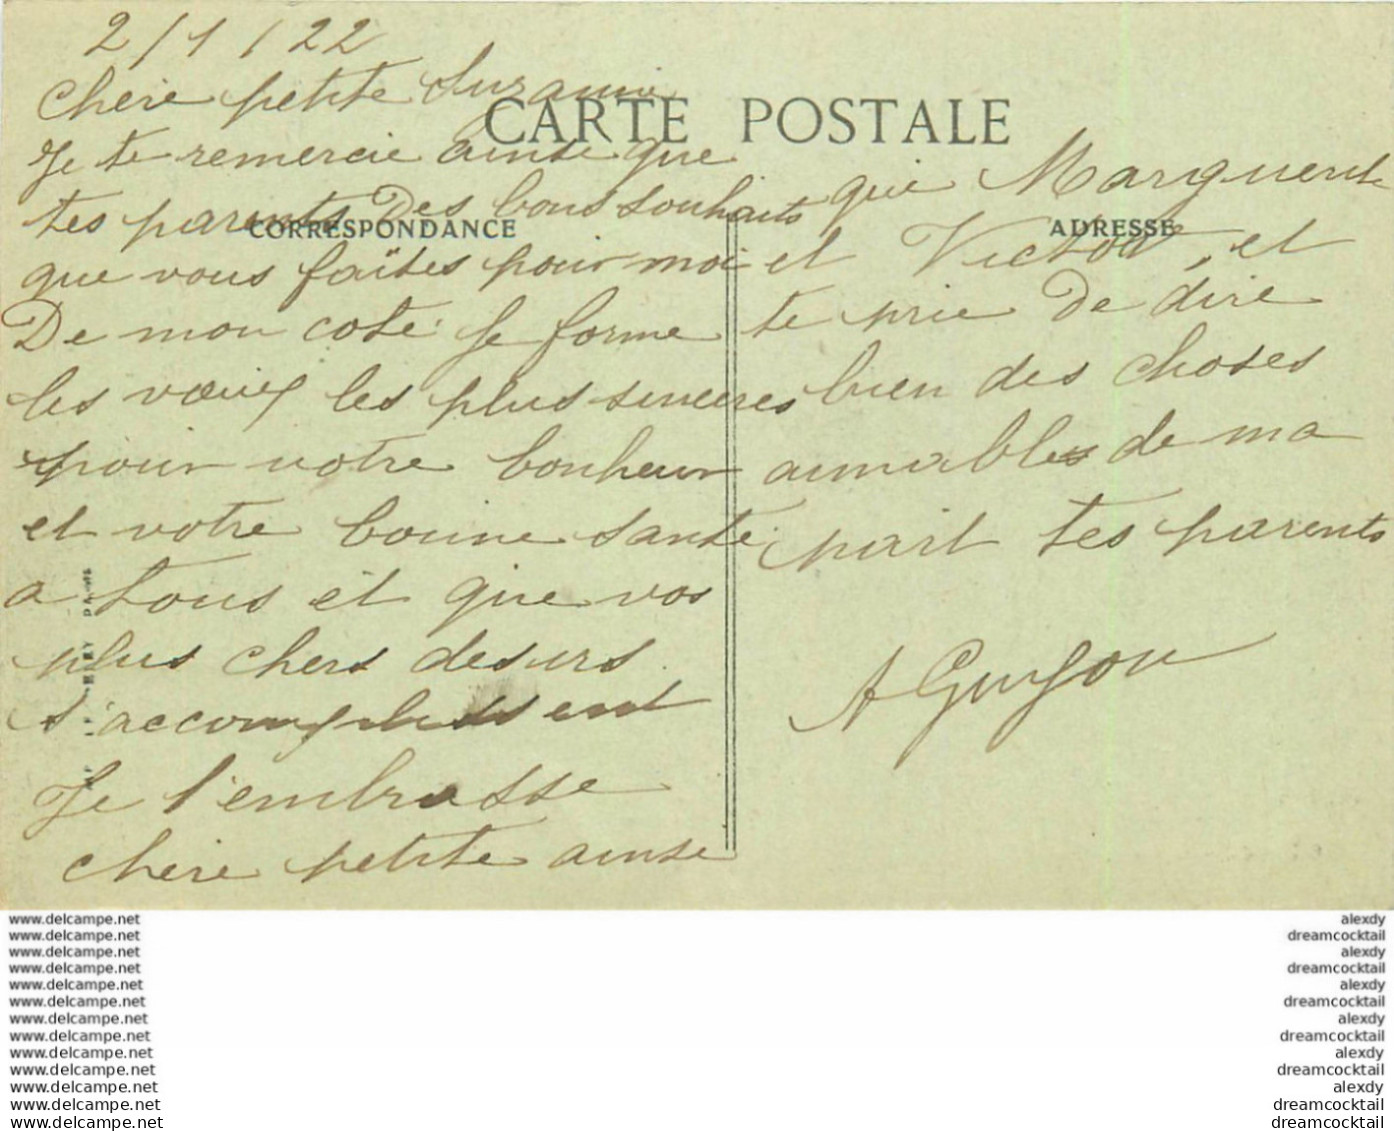 2/1/22
Chere petite Suzanne
CARTE POSTALE
Je te remercie ainsi que
tes parents Des bons souhaits
CORRESPONDANCE
que vous faïtes pour moi
De mon coté je forme
les vœux les plus sinceres
pour votre bonheur
et votre bonne santé
a tous et que vos
plus chers desirs
s'accomplissent
Je t'embrasse
chere petite ainsi
que Marguerite
ADRESSE
et Victor, et
te prie De dire
bien des choses
aimables de ma
part tes parents
A Guyou
www.delcampe.net
www.delcampe.net
www.delcampe.net
www.delcampe.net
www.delcampe.net
www.delcampe.net
www.delcampe.net
www.delcampe.net
www.delcampe.net
www.delcampe.net
www.delcampe.net
www.delcampe.net
www.delcampe.net
alexdy
dreamcocktail
alexdy
dreamcocktail
alexdy
dreamcocktail
alexdy
dreamcocktail
alexdy
dreamcocktail
alexdy
dreamcocktail
dreamcocktail